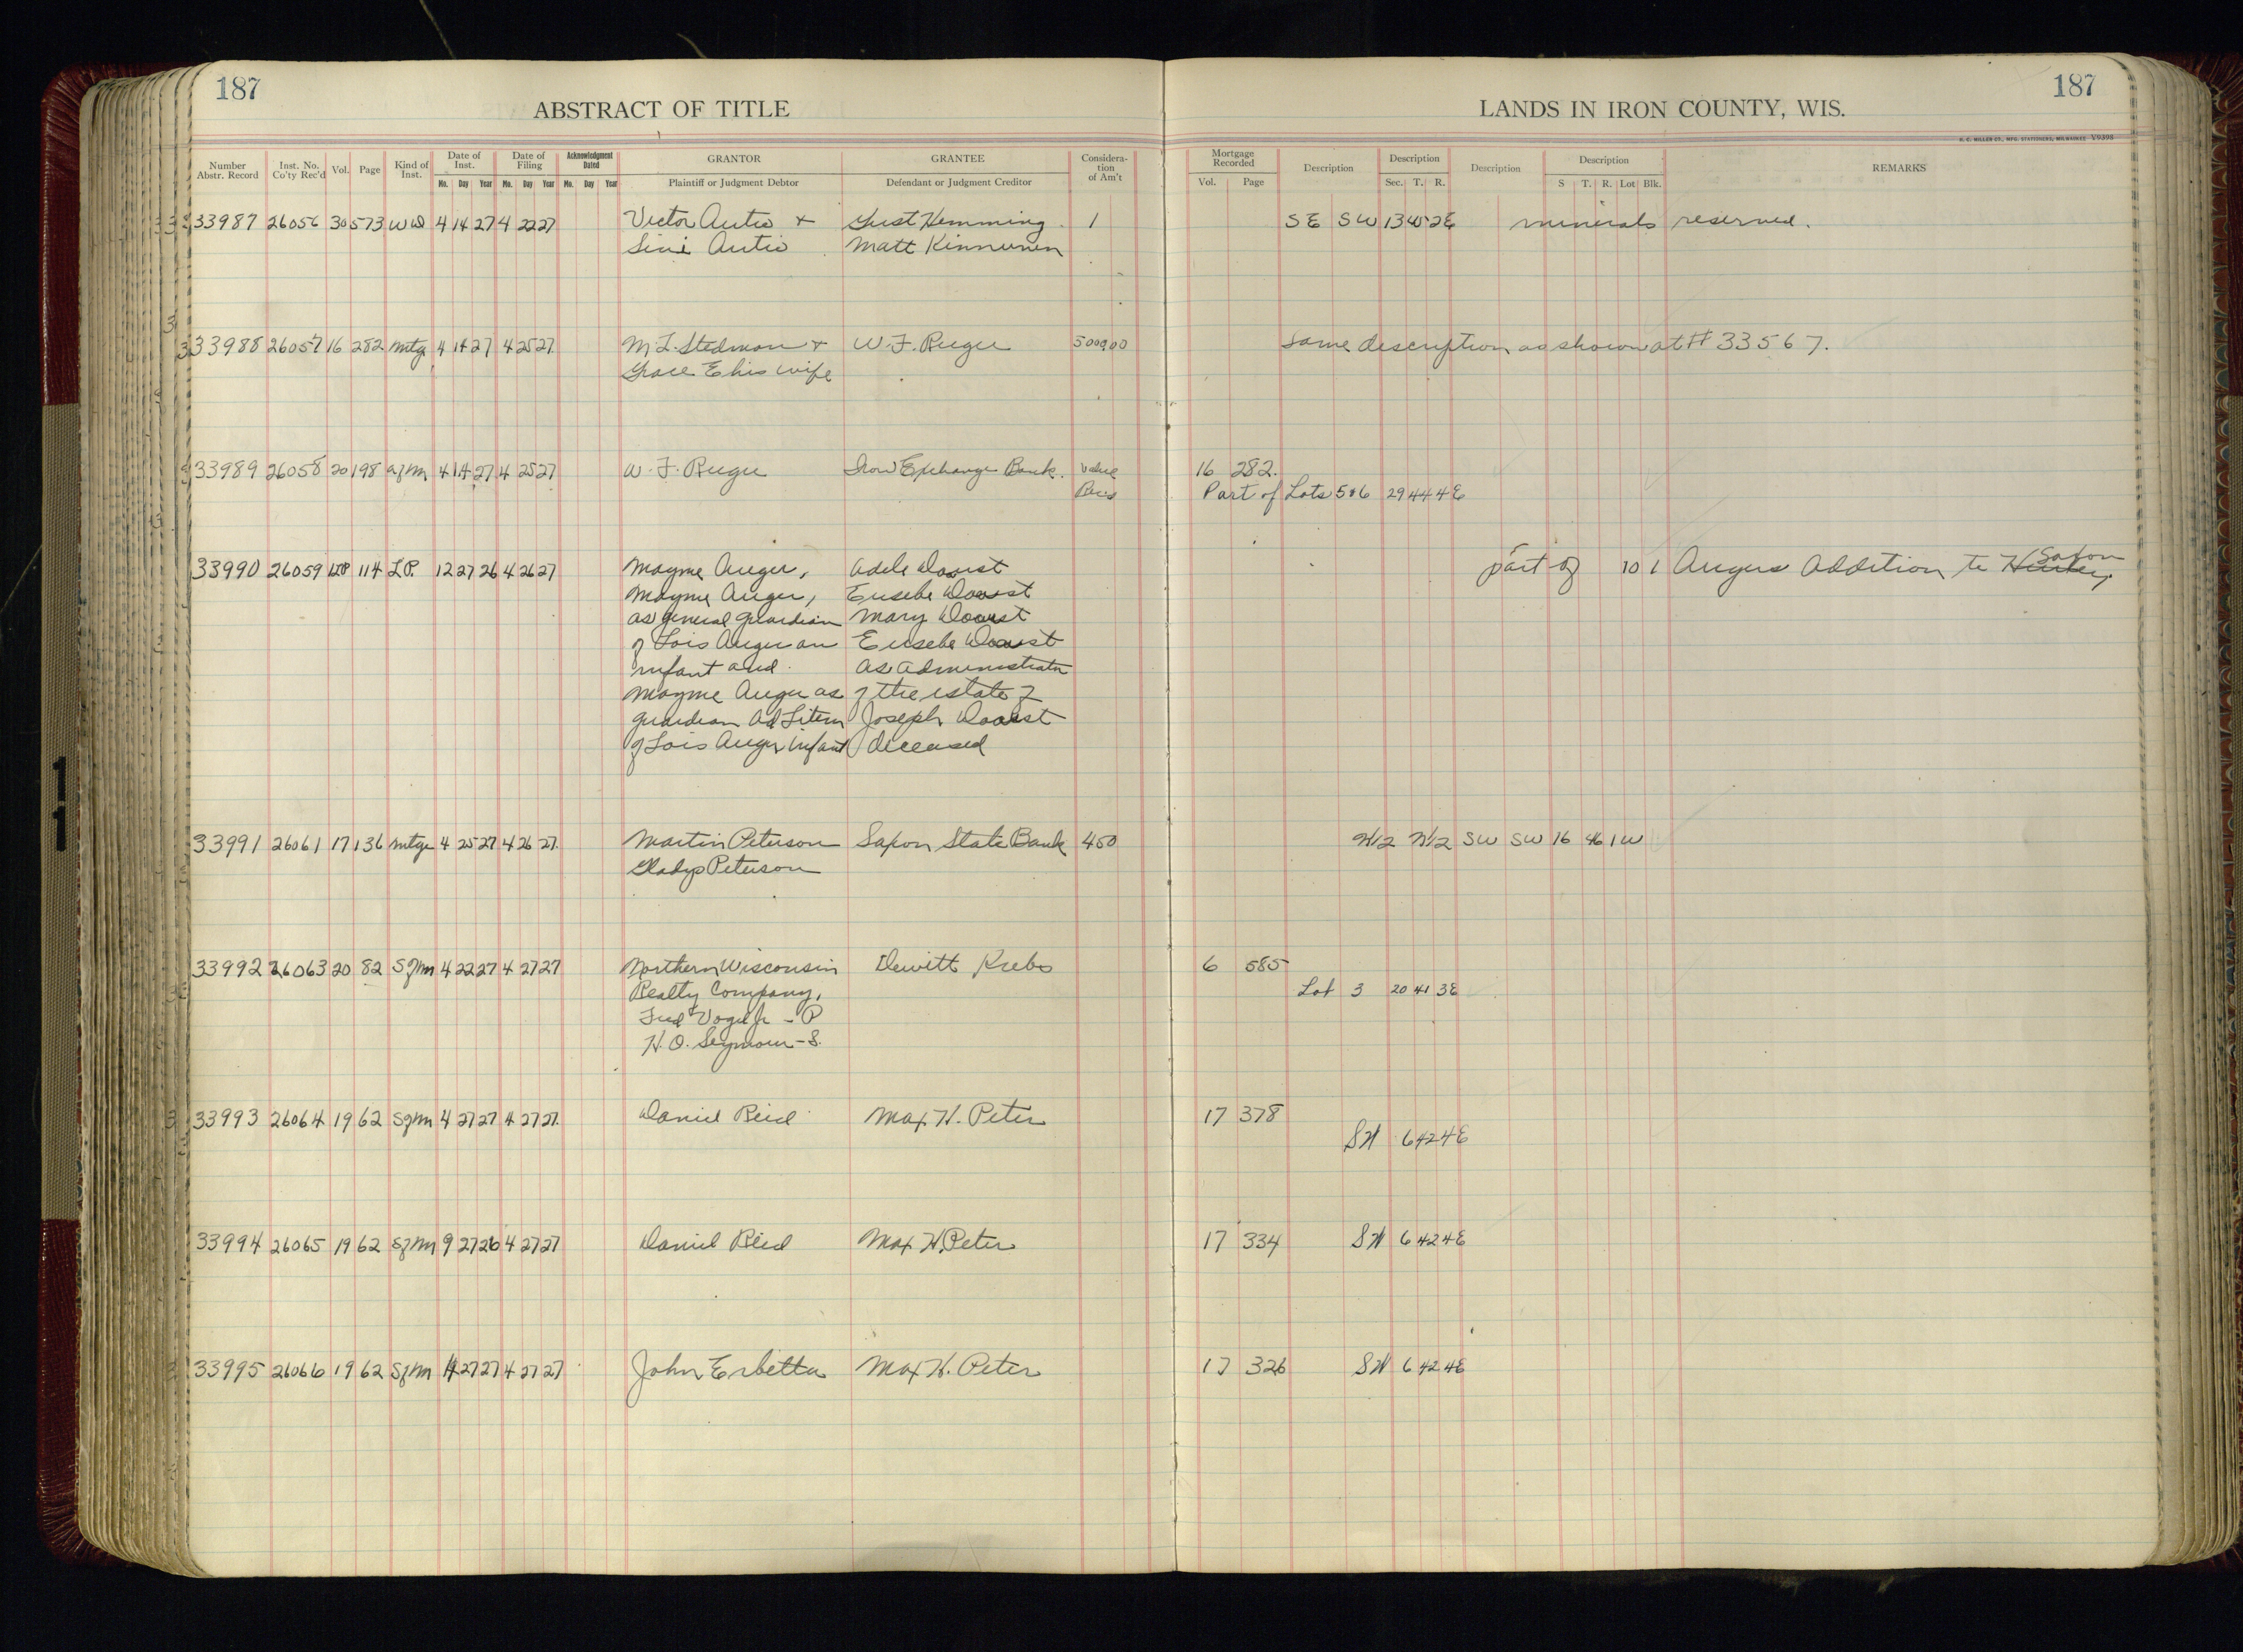 187
ABSTRACT OF TITLE
LANDS IN IRON COUNTY, WIS.
187
H. C. MILLER CO., MFG. STATIONERS, MILWAUKEE V9398
Number Abstr. Record Inst. No. Co'ty Rec'd Vol. Page Kind of Inst. Date of Inst. Mo. Day Year Date of Filing Mo. Day Year Acknowledgment Dated Mo. Day Year GRANTOR Plaintiff or Judgment Debtor GRANTEE Defendant or Judgment Creditor Consideration of Am't
Mortgage Recorded Vol. Page Description Description Sec. T. R. Description Description S T. R. Lot Blk. REMARKS
33987 26056 30 573 WD 4 14 27 4 22 27 Victor Autio + Gust Hemming 1 SE SW 13 45 2E minerals reserved.
Sini Autio Matt Kinnunen
33988 26057 16 282 mtg 4 14 27 4 25 27 M. L. Stedman + W. F. Ruger 5000.00 Same description as shown at # 33567.
Grace E his wife
33989 26058 20 198 asm 4 14 27 4 25 27 W. F. Ruger Iron Exchange Bank. Value 16 282.
Rec'd Part of Lots 5 & 6 29 44 4E
33990 26059 LP 114 L.P. 12 27 26 4 26 27 Mayme Auger, Adele part of 10 1 Augers Addition to Hurley. Saxon
Mayme Auger, Eusebe
as general guardian Mary
of Lois Auger an Eusebe
infant and as administrator
Mayme Auger as of the estate of
guardian Ad Litem Joseph
of Lois Auger infant deceased
33991 26061 17 136 mtge 4 25 27 4 26 27 Martin Peterson Saxon State Bank 450 N1/2 N1/2 SW SW 16 46 1W
Gladys Peterson
33992 26063 20 82 Sfm 4 22 27 4 27 27 Northern Wisconsin Dewitt Krebs 6 585
Realty Company, Lot 3 20 41 3E
Fred Vogel Jr - P
H. O. Seymour - S.
33993 26064 19 62 Sfm 4 27 27 4 27 27 Daniel Reid Max H. Peter 17 378
6 42 4E
33994 26065 19 62 Sfm 9 27 26 4 27 27 Daniel Reid Max H. Peter 17 334 6 42 4E
33995 26066 19 62 Sfm 4 27 27 4 27 27 John Erbetta Max H. Peter 17 326 6 42 4E
11